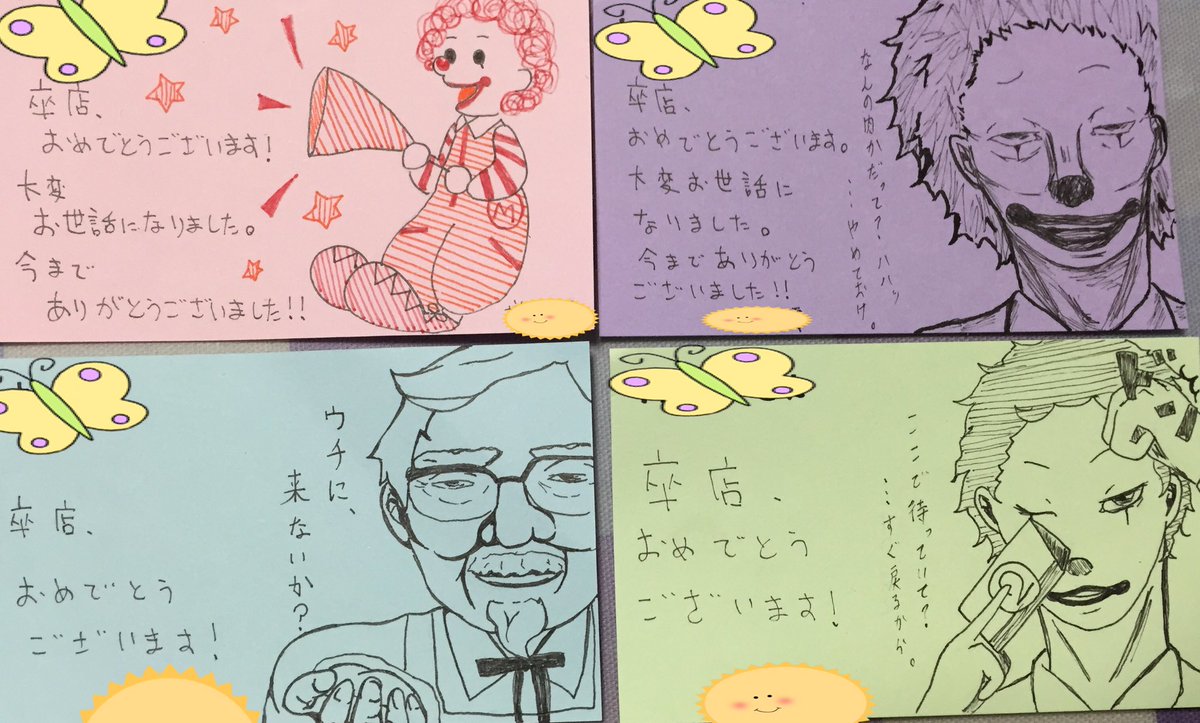 卒店、
おめでとうございます!
大変
お世話になりました。
今まで
ありがとうございました!!
M
卒店、
おめでとうございます。
大変お世話に
なりました。
今までありがとう
ございました!!
なんの肉かだって?ハハッ
…やめておけ。
卒店、
おめでとう
ございます!
ウチに、
来ないか?
卒店、
おめでとう
ございます!
ここで待っていて?
…すぐ戻るから。